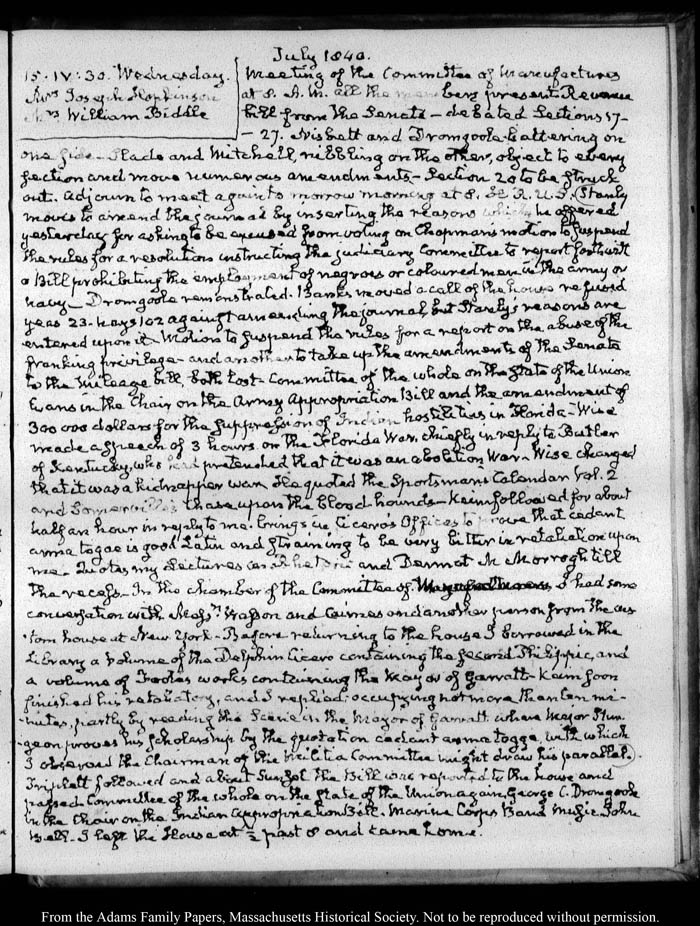 July 1840.
15. IV: 30. Wednesday.
Mrs Joseph Hopkinson
Mrs William Biddle
Meeting of the Committee of Manufactures
at 8. A.M. all the members present. Revenue
bill from the Senate – debated Sections 17–
– 27. Nisbett and Dromgoole battering on
one side – Slade and Mitchell, nibbling on the other, object to every
section and move numerous amendments – Section 20 to be struck
out. adjourn to meet again to morrow morning at 8. H. R. U. S. Stanly
moves to amend the journal by inserting the reasons which he offered
yesterday for asking to be excused from voting on Chapman's motion to suspend
the rules for a resolution instructing the judiciary Committee to report forthwith
a Bill prohibiting the employment of negroes or coloured men in the army or
navy – Dromgoole remonstrated. Banks moved a call of the house refused
yeas 23. nays 102 against amending the journal, but Stanly's reasons are
entered upon it – Motion to suspend the rules for a report on the abuse of the
franking privilege – and another to take up the amendments of the Senate
to the Mileage bill both lost – Committee of the whole on the state of the Union
Evans in the Chair on the Army Appropriation Bill and the amendment of
300 000 dollars for the suppression of Indian hostilities in Florida – Wise
made a speech of 3 hours on the Florida War, chiefly in reply to Butler
of Kentucky, who had pretended that it was an abolition War – Wise charged
that it was a kidnapper war. He quoted the Sportsmans Calendar Vol. 2
and Somerville's those upon the blood hounds – Keim followed for about
half an hour in reply to me. brings in Cicero's Offices to prove that cedant
arma togae is good Latin and straining to be very bitter in retaliation upon
me. Quotes my Lectures on rhetoric and Dermot Mc Morrogh till
the recess – In the chamber of the Committee of Manufactures, I had some
conversation with Messrs Wasson and Cairnes and another person from the cus
tom house at New York – Before returning to the house I borrowed in the
Library a volume of the Delphin Cicero containing the second Philippic, and
a volume of Footes works containing the Mayor of Garratt – Keim soon
finished his retaliatory, and I replied, occupying not more than ten mi-
-nutes, partly by reading the scene in the Mayor of Garratt where Major Stur
geon proves his scholarship by the quotation cedant arma togge, with which
I observed the Chairman of the Militia Committee might draw his parallel.
Triplett followed and about Sunset the Bill was reported to the house and
passed. Committee of the whole on the state of the Union again, George C. Dromgoole
in the Chair on the Indian appropriation Bill. Marine Corps Band Music. John
Bell. I left the House at ½ past 8 and came home.
From the Adams Family Papers, Massachusetts Historical Society. Not to be reproduced without permission.